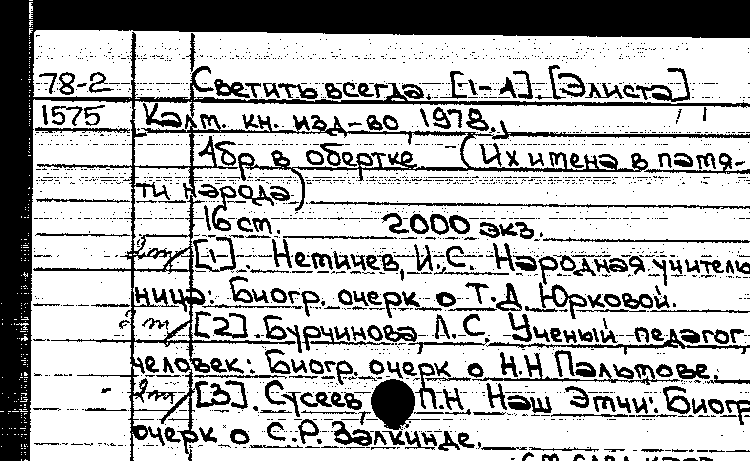 78-2 Светить всегда. [1-4]. [Элиста]
1575 Калм. кн. изд-во, 1978.]
4бр. в обертке (Их имена в памя-
ти народа)
16 см. 2000 экз.
2т/ [1]. Немичев, И.С. Народная учитель
ница: Биогр. очерк о Т.Д. Юрковой.
2т/ [2]. Бурчинова, Л.С. Ученый, педагог,
человек: Биогр. очерк о Н.Н Пальмове.
- 2т/ [3]. Сусеев, П.Н. Наш Эмчи: Биогр
очерк о С.Р. Залкинде.